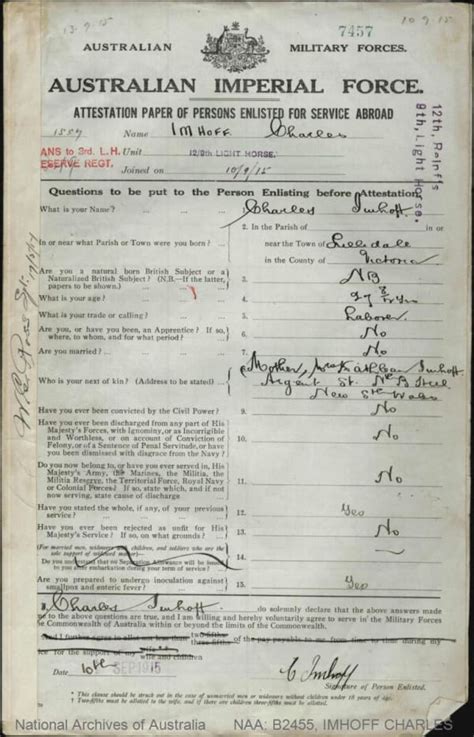 13.9.15
10 9 15
7457
AUSTRALIAN MILITARY FORCES.
AUSTRALIAN IMPERIAL FORCE.
ATTESTATION PAPER OF PERSONS ENLISTED FOR SERVICE ABROAD
Name IMHOFF Charles
ANS to 3rd. L.H. Unit 12/9th LIGHT HORSE.
RESERVE REGT. Joined on 10/9/15
12th, Reinf'ts
9th, Light Horse.
Questions to be put to the Person Enlisting before Attestation.
What is your Name? Charles Imhoff
In or near what Parish or Town were you born? 2. In the Parish of
near the Town of Lillidale
in the County of Victoria
Are you a natural born British Subject or a
Naturalized British Subject? (N.B.—If the latter,
papers to be shown.) 3. NB
What is your age? 4.
What is your trade or calling? 5. Laborer
Are you, or have you been, an Apprentice? If so,
where, to whom, and for what period? 6. No
Are you married? 7. No
Who is your next of kin? (Address to be stated) 8. Mother, Mrs Kathleen Imhoff
Argent St. Bn Hill
New Sth Wales
Have you ever been convicted by the Civil Power? 9. No
Have you ever been discharged from any part of His
Majesty's Forces, with Ignominy, or as Incorrigible
and Worthless, or on account of Conviction of
Felony, or of a Sentence of Penal Servitude, or have
you been dismissed with disgrace from the Navy? 10. No
Do you now belong to, or have you ever served in, His
Majesty's Army, the Marines, the Militia, the
Militia Reserve, the Territorial Force, Royal Navy
or Colonial Forces? If so, state which, and if not
now serving, state cause of discharge 11. No
Have you stated the whole, if any, of your previous
service? 12. Yes
Have you ever been rejected as unfit for His
Majesty's Service? If so, on what grounds? 13. No
(For married men, widowers with children, and soldiers who are the
sole support of widowed mother)
Do you understand that no Separation Allowance will be issued
to you after embarkation during your term of service? 14.
Are you prepared to undergo inoculation against
smallpox and enteric fever? 15. Yes
I, Charles Imhoff do solemnly declare that the above answers made
by me to the above questions are true, and I am willing and hereby voluntarily agree to serve in the Military Forces
of the Commonwealth of Australia within or beyond the limits of the Commonwealth.
And I further agree to allot not less than two-fifths
three-fifths of the pay payable to me from time to time during my
service for the support of my wife
wife and children
Date 10th SEP 1915
C Imhoff
Signature of Person Enlisted.
* This clause should be struck out in the case of unmarried men or widowers without children under 18 years of age.
National Archives of Australia NAA: B2455, IMHOFF CHARLES